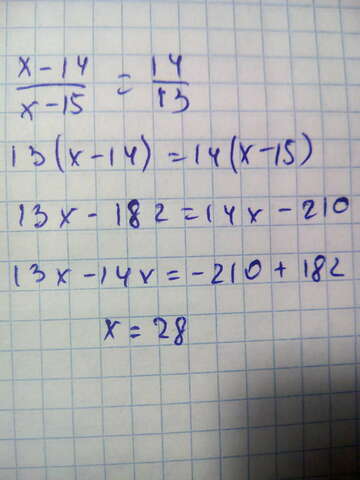 x-14/x-15 = 14/13
13(x-14) = 14(x-15)
13x - 182 = 14x - 210
13x - 14x = -210 + 182
x = 28